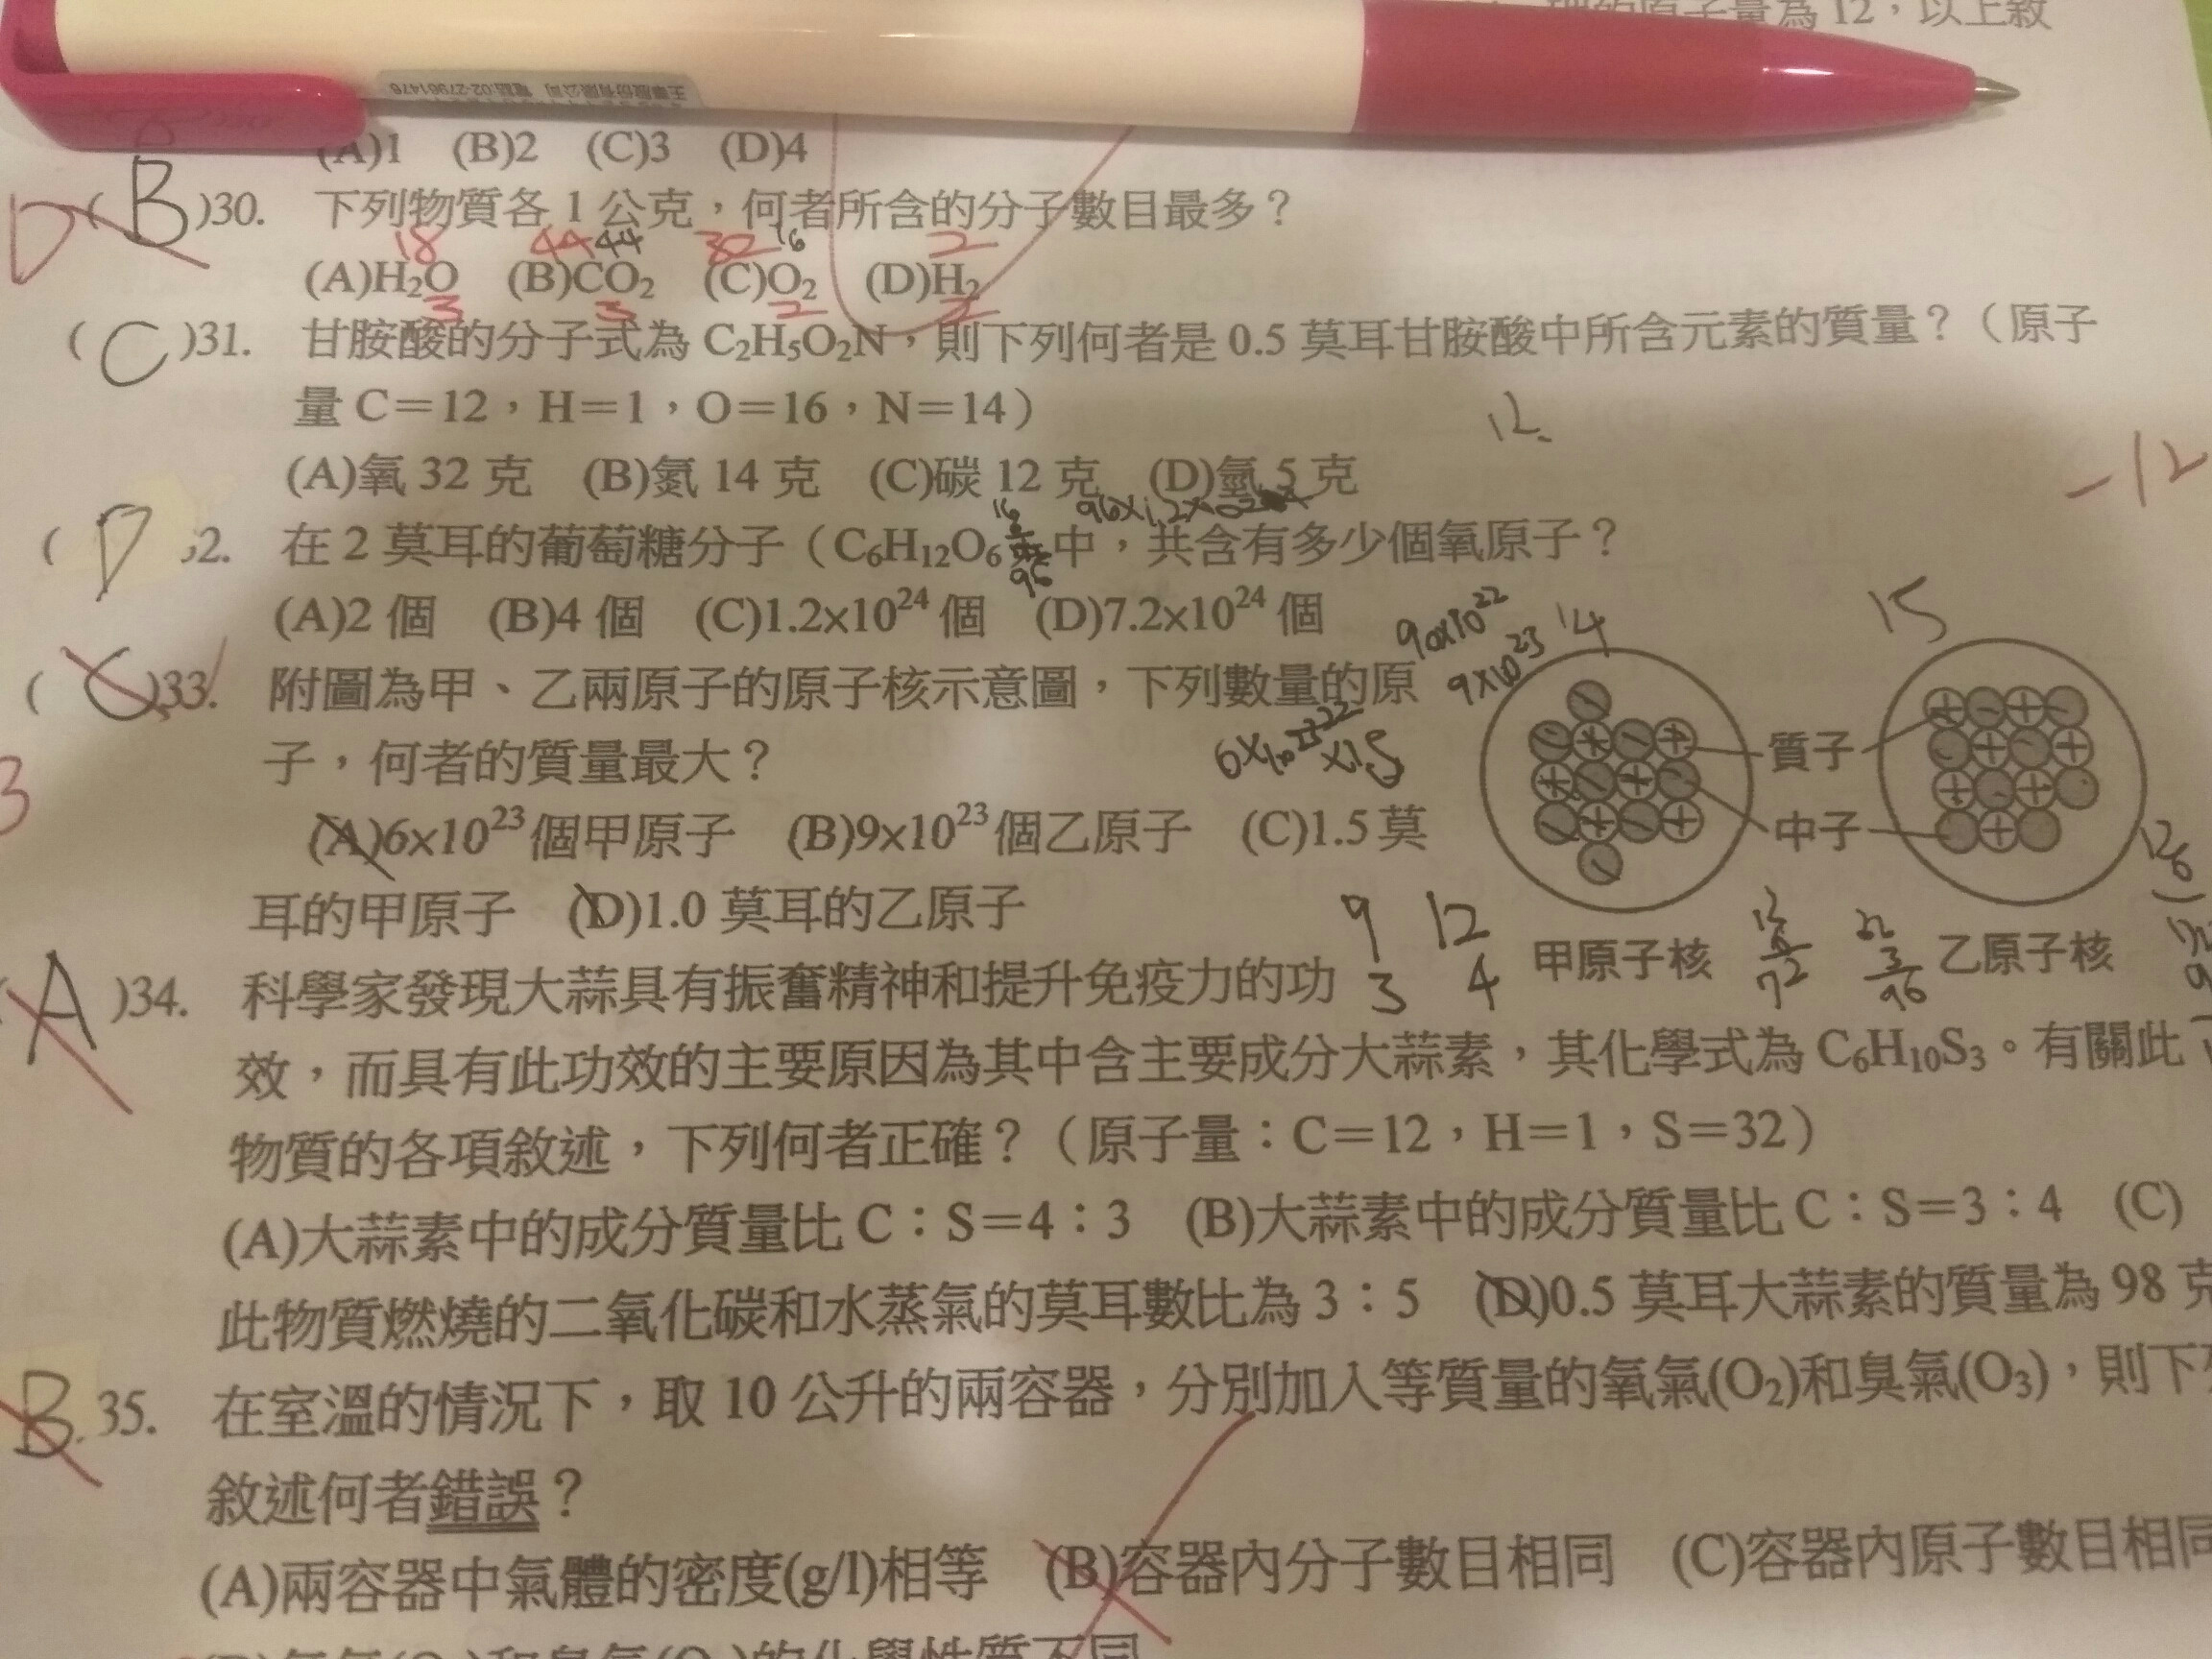 原子量為 12，以上敘
王華股份有限公司 電話:02-27961476
(A)1 (B)2 (C)3 (D)4
D ( B )30. 下列物質各 1 公克，何者所含的分子數目最多？
18 44 44 32 16 2
(A)H₂O (B)CO₂ (C)O₂ (D)H₂
3 3 2 2
( C )31. 甘胺酸的分子式為 C₂H₅O₂N，則下列何者是 0.5 莫耳甘胺酸中所含元素的質量？（原子
量 C＝12，H＝1，O＝16，N＝14）
12.
-12
(A)氧 32 克 (B)氮 14 克 (C)碳 12 克 (D)氫 5 克
16
( D 32. 在 2 莫耳的葡萄糖分子（C₆H₁₂O₆ 中，共含有多少個氧原子？
96
(A)2 個 (B)4 個 (C)1.2x10²⁴ 個 (D)7.2x10²⁴ 個
90x10²²
9x10²³
14
15
( C )33. 附圖為甲、乙兩原子的原子核示意圖，下列數量的原
子，何者的質量最大？
質子
中子
(A)6x10²³ 個甲原子 (B)9x10²³ 個乙原子 (C)1.5 莫
耳的甲原子 (D)1.0 莫耳的乙原子
9 12
3 4
甲原子核
72
3
96
乙原子核
( A )34. 科學家發現大蒜具有振奮精神和提升免疫力的功
效，而具有此功效的主要原因為其中含主要成分大蒜素，其化學式為 C₆H₁₀S₃。有關此
物質的各項敘述，下列何者正確？（原子量：C＝12，H＝1，S＝32）
(A)大蒜素中的成分質量比 C：S＝4：3 (B)大蒜素中的成分質量比 C：S＝3：4 (C)
此物質燃燒的二氧化碳和水蒸氣的莫耳數比為 3：5 (D)0.5 莫耳大蒜素的質量為 98 克
B 35. 在室溫的情況下，取 10 公升的兩容器，分別加入等質量的氧氣(O₂)和臭氧(O₃)，則下
敘述何者錯誤？
(A)兩容器中氣體的密度(g/l)相等 (B)容器內分子數目相同 (C)容器內原子數目相同
的化學性質不同